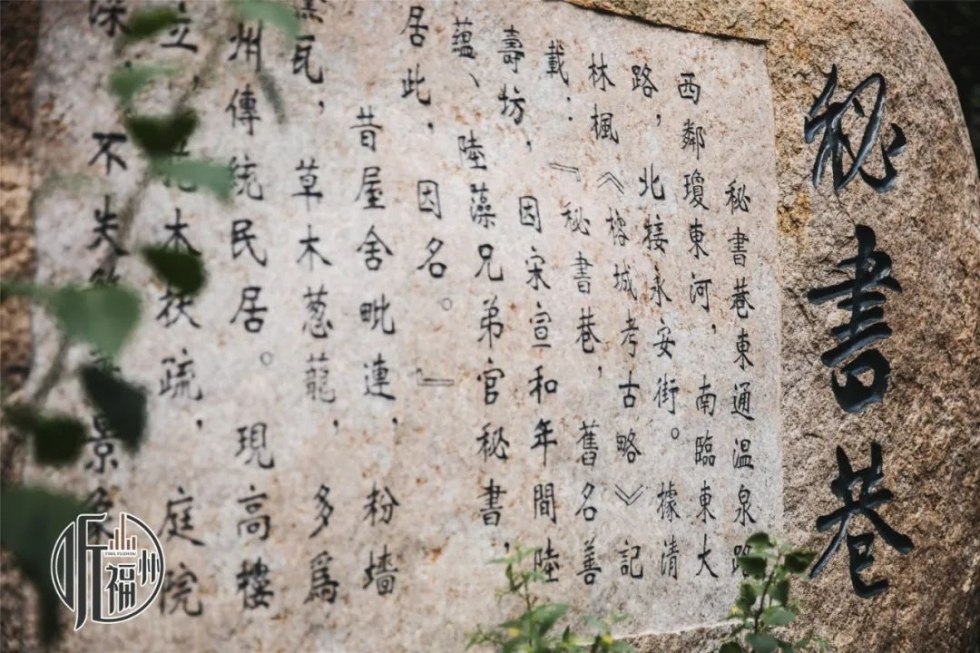 秘書巷
秘書巷東通温泉路
西鄰瓊東河，南臨東大
路，北接永安街。據清
林楓《榕城考古略》記
載：『秘書巷，舊名善
壽坊，因宋宣和年間陸
藴、陸藻兄弟官秘書，
居此，因名。』
昔屋舍毗連，粉墻
黛瓦，草木葱蘢，多爲
州傳統民居。現高樓
立，木扶疏，庭院
不失景
听福州
TING FUZHOU